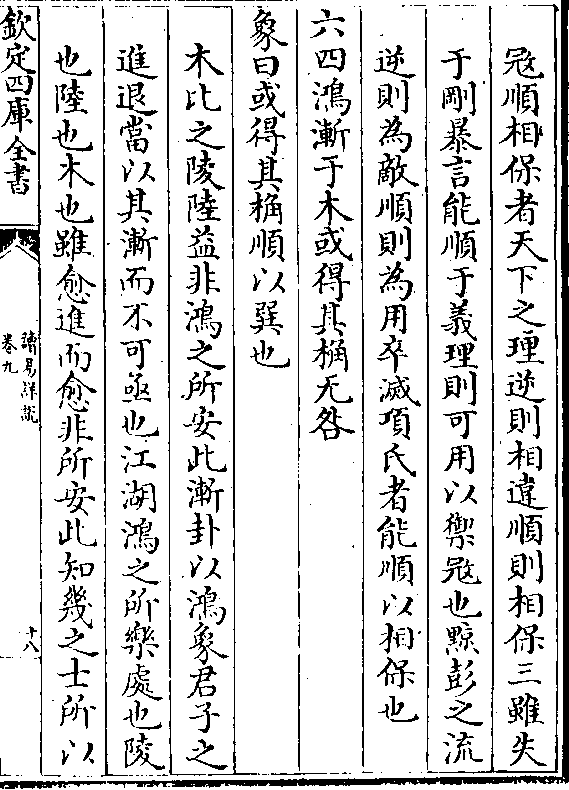 寇順相保者天下之理逆則相違順則相保三雖失
于剛暴言能順于義理則可用以禦寇也黥彭之流
逆則為敵順則為用卒滅項氏者能順以相保也
六四鴻漸于木或得其桷无咎
象曰或得其桷順以巽也
木比之陵陸益非鴻之所安此漸卦以鴻象君子之
進退當以其漸而不可亟也江湖鴻之所樂處也陵
也陸也木也雖愈進而愈非所安此知幾之士所以
欽定四庫全書
讀易詳說
卷九
十八